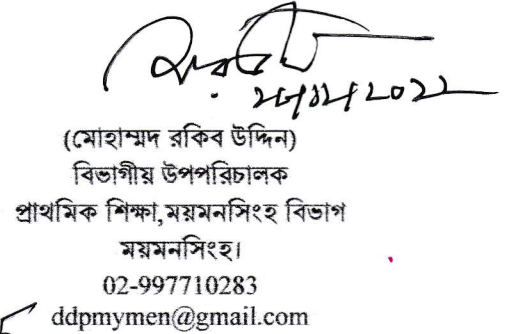 ২৮/১২/২০২২
(মোহাম্মদ রকিব উদ্দিন)
বিভাগীয় উপপরিচালক
প্রাথমিক শিক্ষা,ময়মনসিংহ বিভাগ
ময়মনসিংহ।
02-997710283
ddpmymen@gmail.com